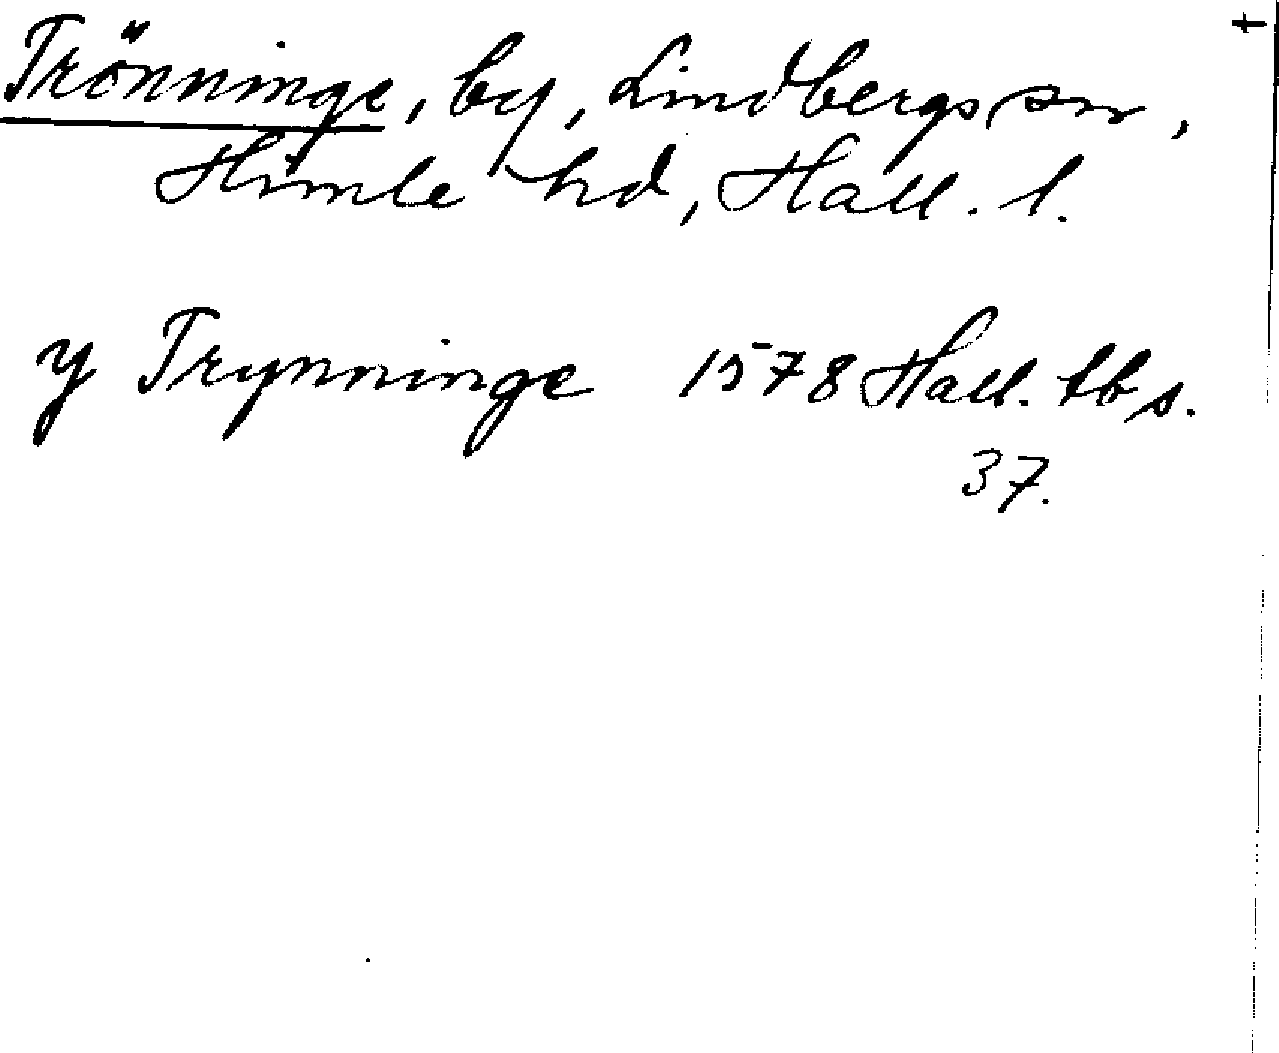 Trönninge, by, Lindbergs sn,
Himle hd, Hall. l.
y Trynninge 1578 Hall. tb s.
37.